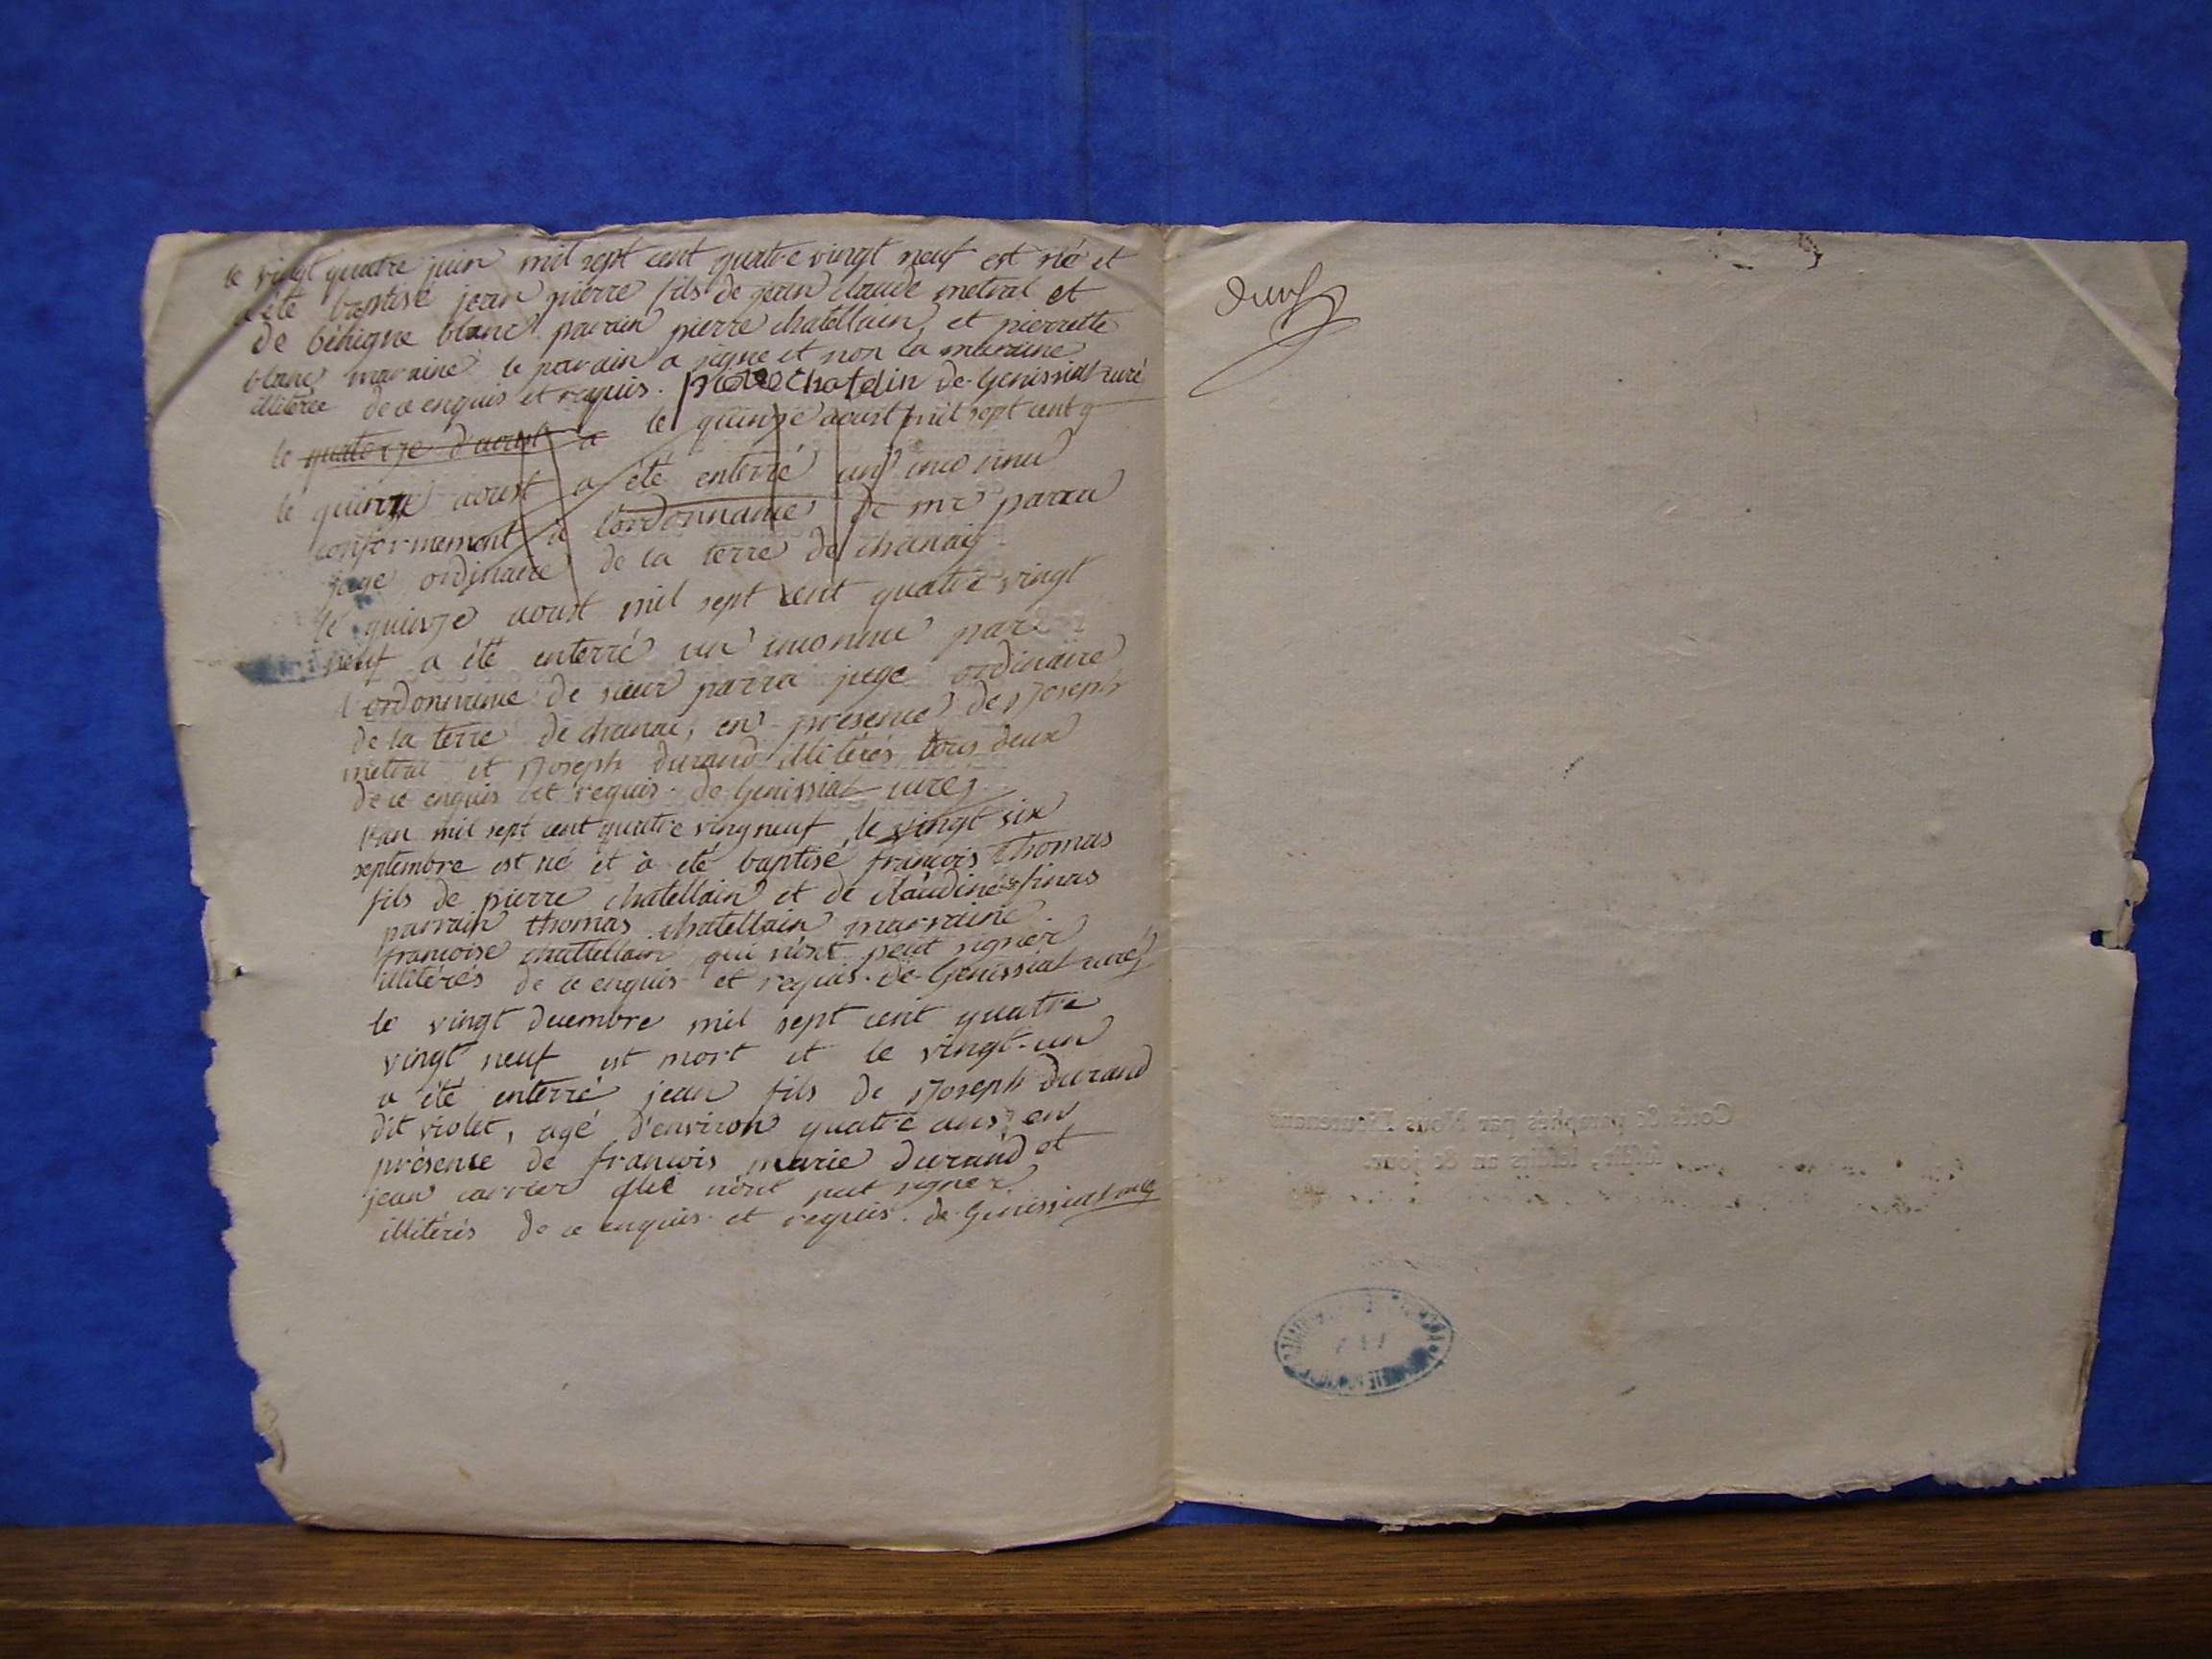 le vingt quatre juin mil sept cent quatre vingt neuf est né et
a été baptisé jean pierre fils de jean claude metral et
de bénigne blanc parrain pierre chatellain, et pierrette
blanc marraine le parrain a signé et non la marraine
illiterée de ce enquis et requis. pierre chatelin de Genissiat curé
le quatorze d'aoust a le quinze aoust mil sept cent q
le quinze aoust a été enterré un inconnu
conformement a l'ordonnance de mr parra
juge ordinaire de la terre de chanai
le quinze aoust mil sept cent quatre vingt
neuf a été enterré un inconnu par
l'ordonnance de sieur parra juge ordinaire
de la terre de chanai, en presence de Joseph
metral et Joseph durand illitérés tous deux
de ce enquis et requis. de Genissiat curé
l'an mil sept cent quatre vingneuf le vingt six
septembre est né et à eté baptisé françois thomas
fils de pierre chatellain et de claudine finas
parrain thomas chatellain marraine
françoise chatellain qui n'ont peut signer
illitérés de ce enquis et requis. de Genissiat curé
le vingt decembre mil sept cent quatre
vingt neuf est mort et le vingt-un
a été enterré jean fils de Joseph durand
dit violet, agé d'environ quatre ans, en
présence de françois marie durand et
jean carrier qui n'ont peut signer
illitérés de ce enquis et requis. de Genissiat curé
Cotés & paraphés par Nous Lieutenant
susdit, lesdits an & jour.